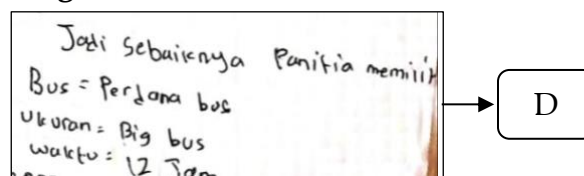 Jadi sebaiknya Panitia memilih
Bus = Perdana bus
Ukuran = Big bus
waktu = 12 Jam
D